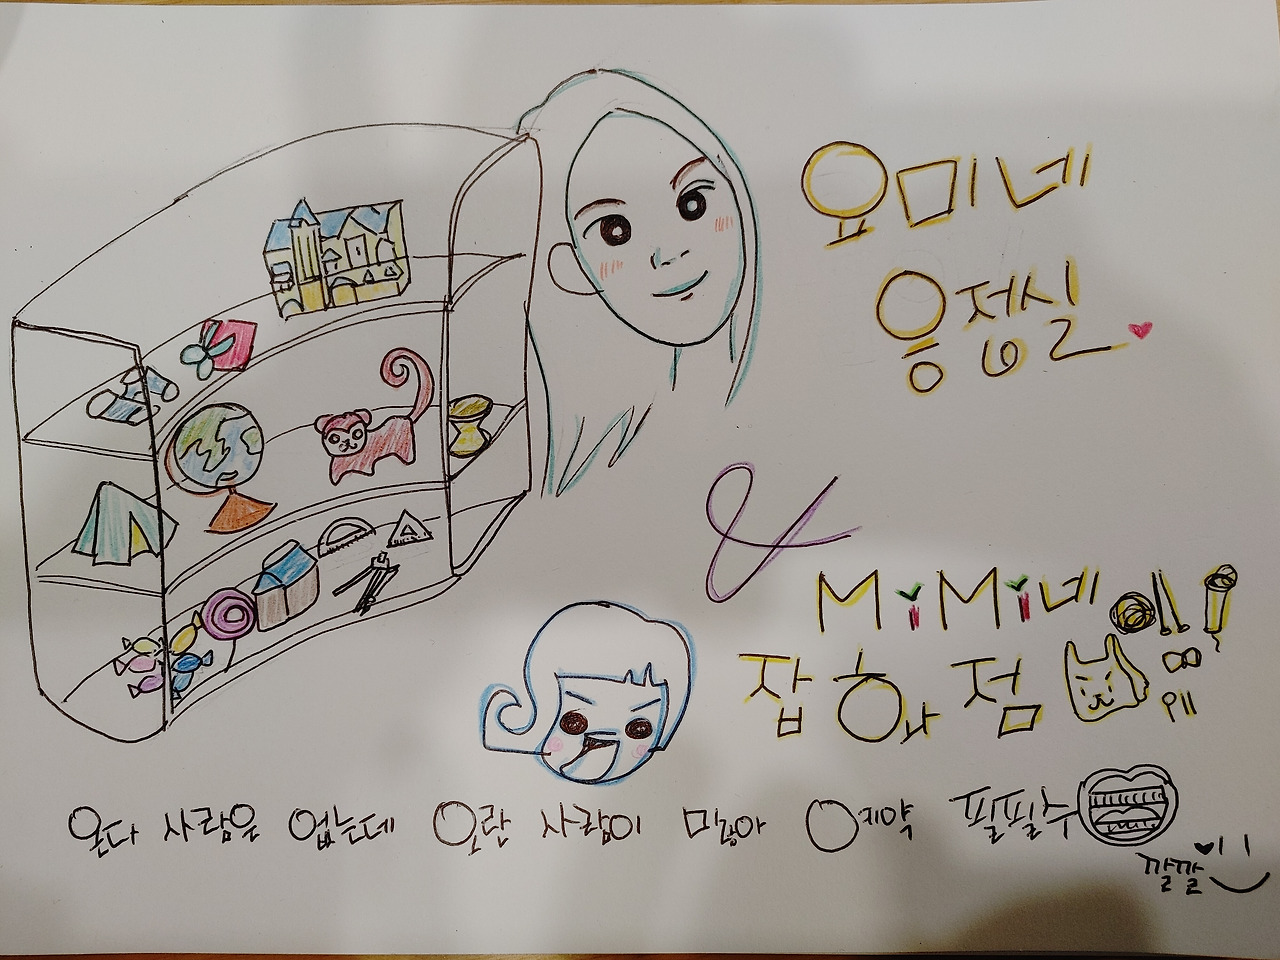 요미네
응접실
&
MiMi네
잡화점
온다 사람은 없는데 오란 사람이 많아 예약 필필수
깔깔